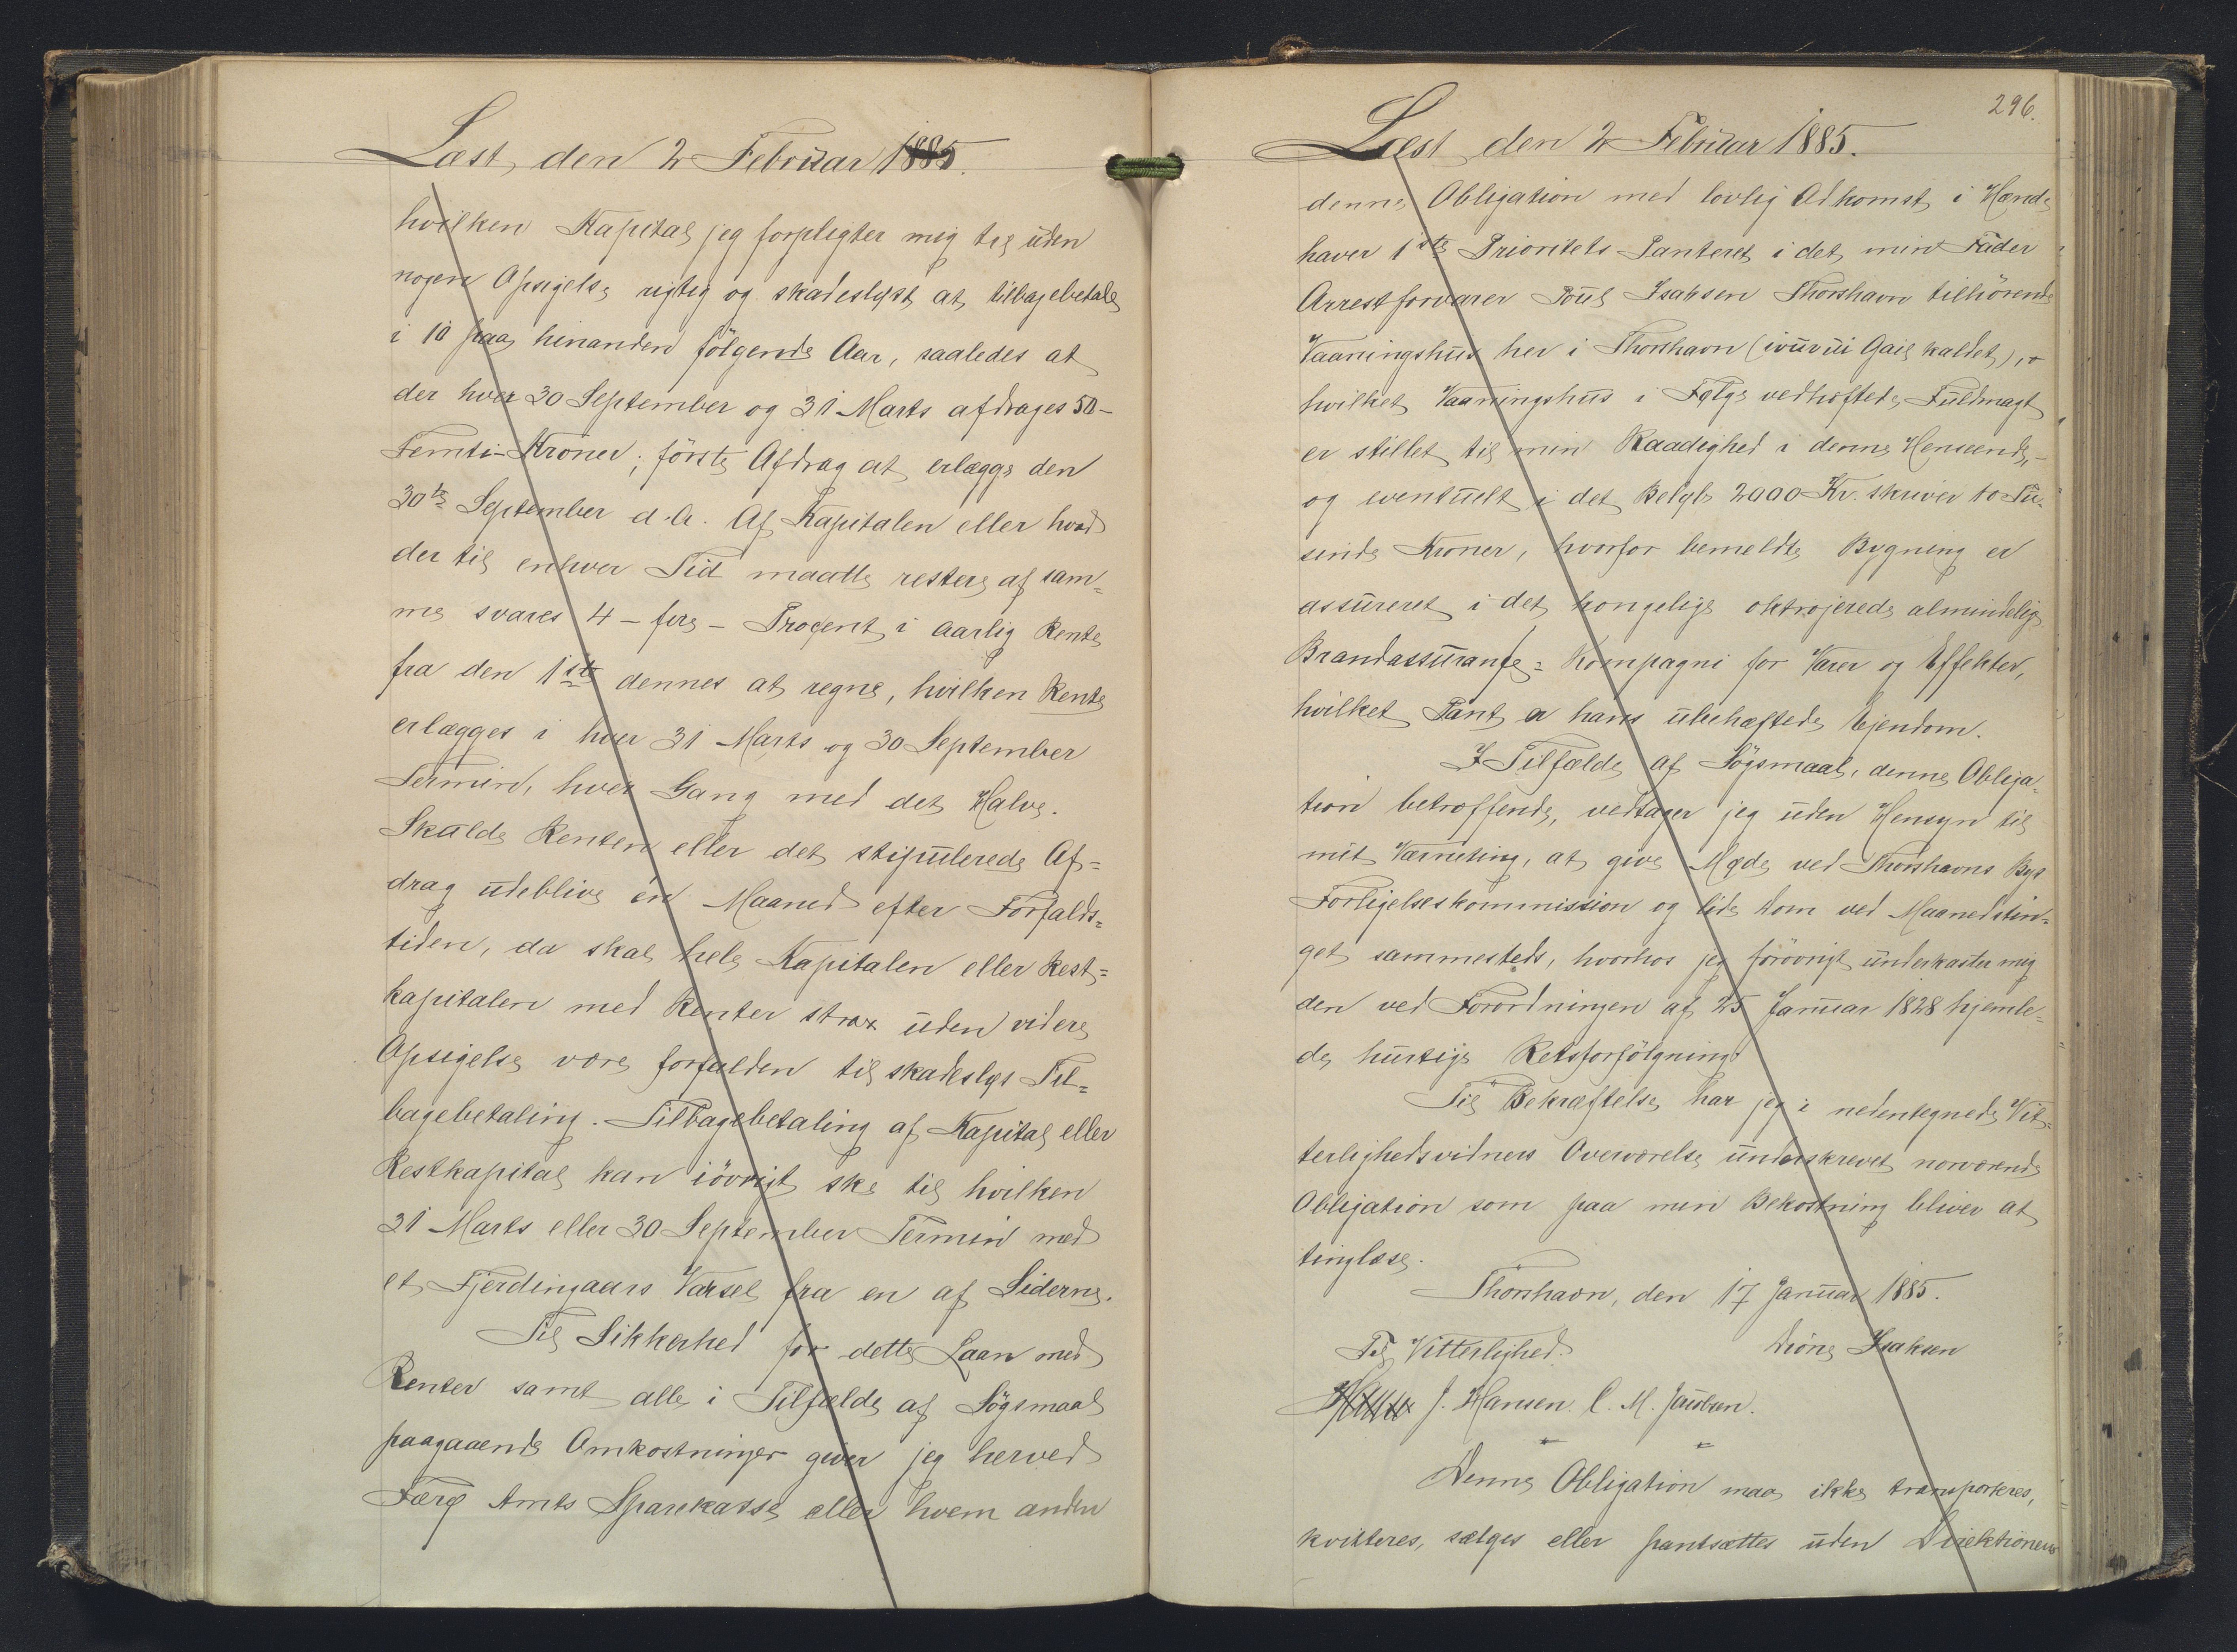 Læst den 2 Februar 1885.
hvilken Kapital jeg forpligter mig til uden
nogen Opsigelse rigtig og skadesløst at tilbagebetale
i 10 paa hinanden følgende Aar, saaledes at
der hver 30 September og 31 Marts afdrages 50-
Femti-Kroner; første Afdrag at erlægge den
30te September d. A. Af Kapitalen eller hvad
der til enhver Tid maatte restere af sam=
me svares 4 - fire - Procent i aarlig Rente
fra den 1ste dennes at regne, hvilken Rente
erlægges i hver 31 Marts og 30 September
Termin, hver Gang med det Halve.
Skulde Renten eller det stipulerede Af=
drag udeblive én Maaned efter Forfalds=
tiden, da skal hele Kapitalen eller Rest=
kapitalen med Renter strax uden videre
Opsigelse være forfalden til skadesløs Til=
bagebetaling. Tilbagebetaling af Kapital eller
Restkapital kan iøvrigt ske til hvilken
31 Marts eller 30 September Termin med
et Fjerdingaars Varsel fra en af Siderne.
Til Sikkerhed for dette Laan med
Renter samt alle i Tilfælde af Søgsmaal
paagaaende Omkostninger giver jeg herved
Færø Amts Sparekasse eller hvem anden
296.
Læst den 2 Februar 1885.
denne Obligation med lovlig Adkomst i Hænde
haver 1ste Prioritets Panteret i det min Fader
Arrestforvarer Poul Isaksen Thorshavn tilhørende
Vaaningshus her i Thorshavn ( kaldet),
hvilket Vaaningshus i Følge vedhæftede Fuldmagt
er stillet til min Raadighed i denne Henseende,-
og eventuelt i det Beløb 2000 Kr. skriver to Tu=
sinde Kroner, hvorfor bemeldte Bygning er
assureret i det kongelige oktrojerede almindelige
Brandassurance=Kompagni for Varer og Effekter,
hvilket Pant er hans ubehæftede Ejendom.
I Tilfælde af Søgsmaal, denne Obliga=
tion betræffende, vedtager jeg uden Hensyn til
mit Værneting, at give Møde ved Thorshavns Bys
Forligelseskommission og lide Dom ved Maanedstin=
get sammesteds, hvorhos jeg førøvrigt underkaster mig
den ved Forordningen af 25 Januar 1828 hjemle=
de hurtige Retsforfølgning.
Til Bekræftelse har jeg i nedentegnede Vit=
terlighedsvidners Overværelse underskrevet nærværende
Obligation som paa min Bekostning bliver at
tinglæse.
Thorshavn, den 17 Januar 1885.
Til Vitterlighed. Isaksen
J. Hansen. C. M. Jacobsen.
Denne Obligation maa ikke transporteres,
kvitteres, sælges eller pantsættes uden Direktionens